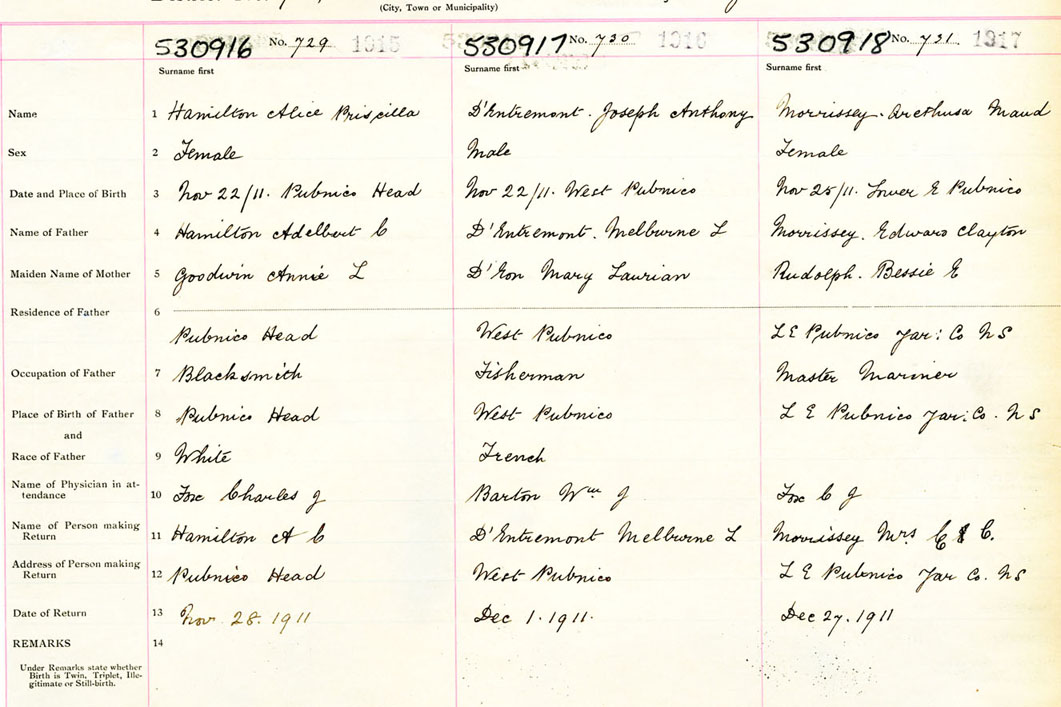 (City, Town or Municipality)
530916 No. 729 1915 530917 No. 730 1916 530918 No. 731 1917
Surname first Surname first Surname first
Name 1 Hamilton Alice Priscilla D'Entremont. Joseph Anthony Morrissey. Arethusa Maud
Sex 2 Female Male Female
Date and Place of Birth 3 Nov 22/11. Pubnico Head Nov 22/11. West Pubnico Nov 25/11. Lower E Pubnico
Name of Father 4 Hamilton Adelbert C D'Entremont. Melburne L Morrissey. Edward Clayton
Maiden Name of Mother 5 Goodwin Annie L D'Eon Mary Laurian Rudolph. Bessie E
Residence of Father 6
Pubnico Head West Pubnico L E Pubnico Yar: Co N S
Occupation of Father 7 Blacksmith Fisherman Master Mariner
Place of Birth of Father 8 Pubnico Head West Pubnico L E Pubnico Yar: Co. N S
and
Race of Father 9 White French
Name of Physician in at-
tendance 10 Fox Charles J Barton Wm J Fox C J
Name of Person making
Return 11 Hamilton A C D'Entremont Melburne L Morrissey Mrs E C.
Address of Person making
Return 12 Pubnico Head West Pubnico L E Pubnico Yar Co. N S
Date of Return 13 Nov 28. 1911 Dec 1. 1911. Dec 27. 1911
REMARKS 14
Under Remarks state whether
Birth is Twin, Triplet, Ille-
gitimate or Still-birth.